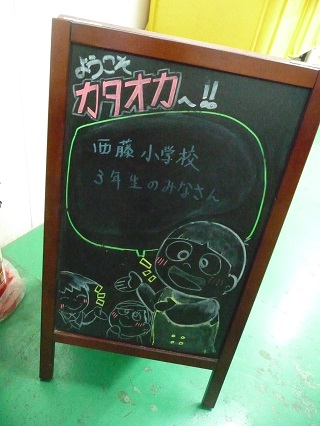 ようこそ
カタオカへ!!
西藤小学校
3年生のみなさん